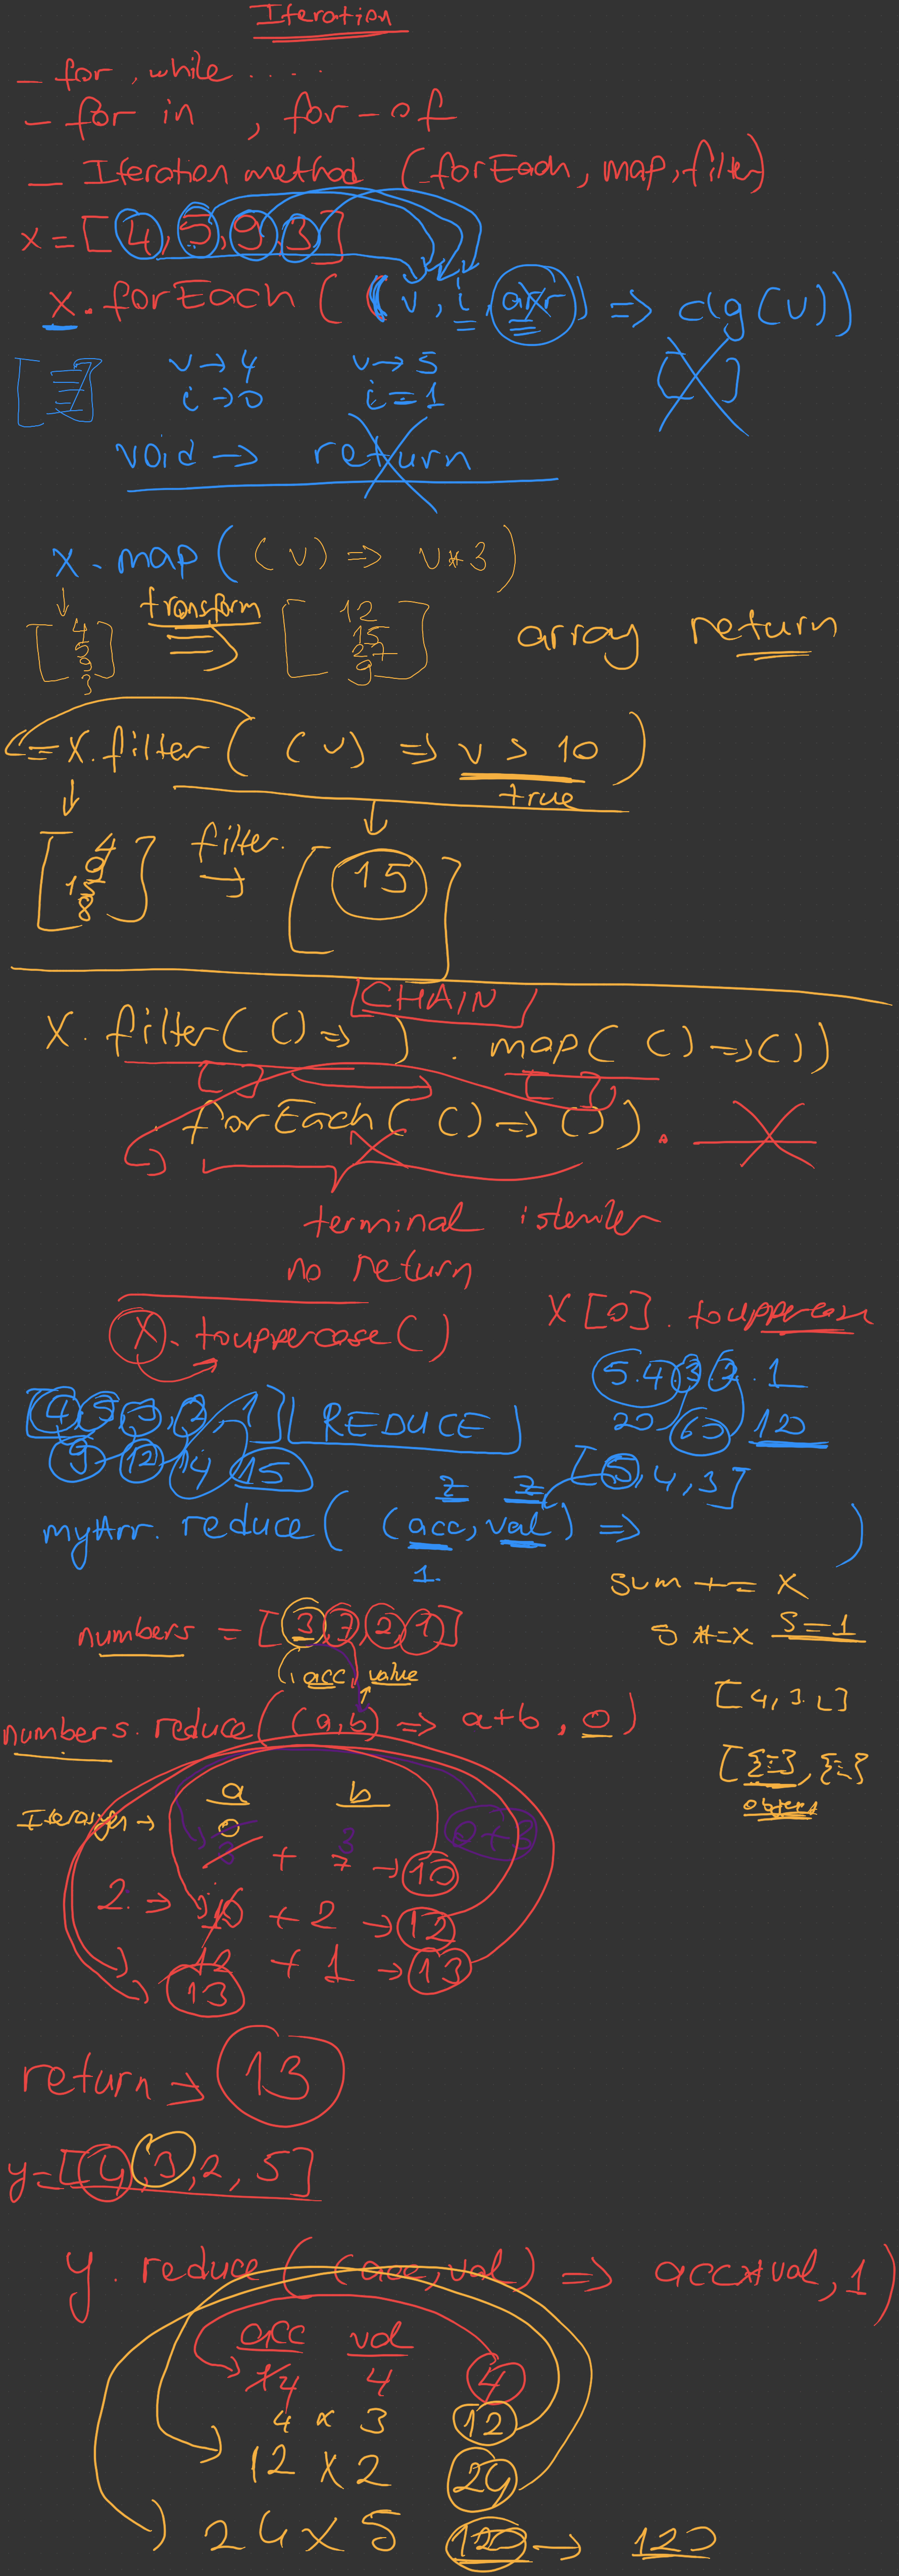 Iteration
- for, while ....
- for in , for-of
- Iteration method (forEach, map, filter)
x = [4, 5, 9, 3]
x.forEach((v, i, arr) => clg(v))
v → 4 v → 5
i → 0 i = 1
void → return
x.map((v) => v*3)
transform
4 12
5 15
9 27
3 9
array return
= x.filter((v) => v > 10)
true
4
9
15
8
filter →
[15]
CHAIN
x.filter(() => ).map(() => ())
forEach(() => ()).
terminal islemler
no return
x.touppercase()
x[0].touppercase
5.4.3.2.1
20 60 120
[4, 5, 3, 2, 1] REDUCE
9 12 14 15
[5, 4, 3]
myArr.reduce((acc, val) => )
1.
sum += x
s *= x s=1
numbers = [3, 7, 2, 1]
acc, value
[4, 3..]
numbers.reduce((a, b) => a+b, 0)
a b
0 3 0+3
3 + 7 → 10
2. ⇒ 10 + 2 → 12
12 + 1 → 13
13
return → 13
y = [4, 3, 2, 5]
y.reduce((acc, val) => acc*val, 1)
acc val
1 4 4 4
4 x 3 12
12 x 2 24
24 x 5 120 → 120